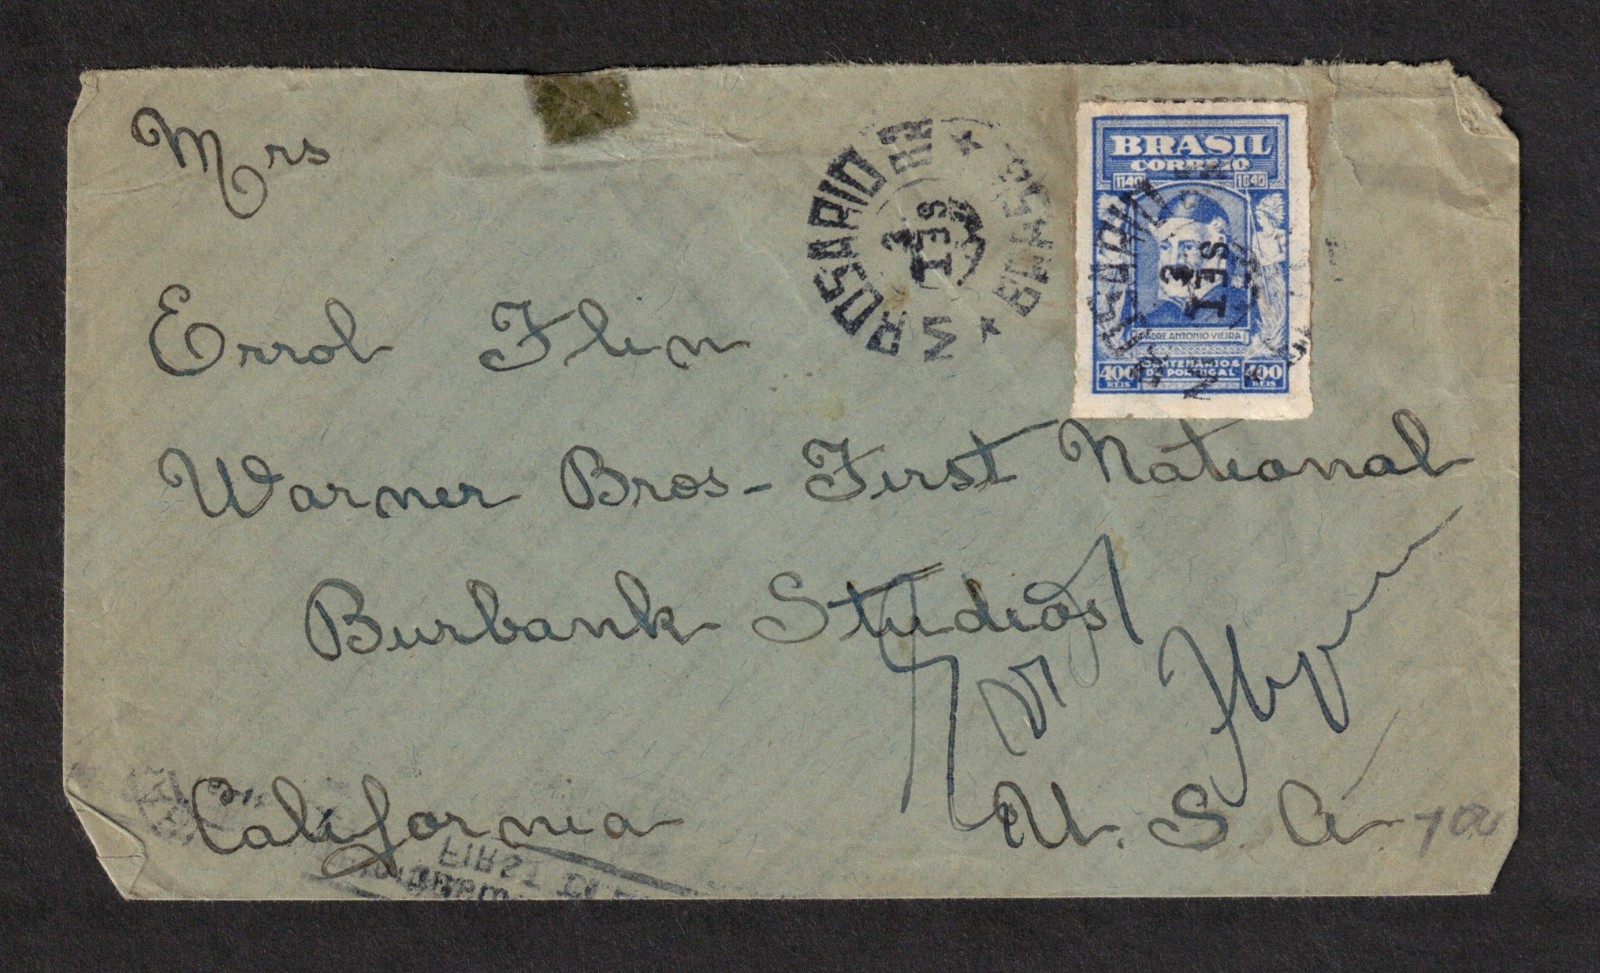 Mrs
Errol Flin
Warner Bros - First National
Burbank Studios
California
U. S. A.
ROSARIO
3
SET
BRASIL
BRASIL
CORREIO
1140 1640
PADRE ANTONIO VIEIRA
400 REIS
CENTENÁRIOS
DE PORTUGAL
400 REIS
ROSARIO
3
SET
FIRST